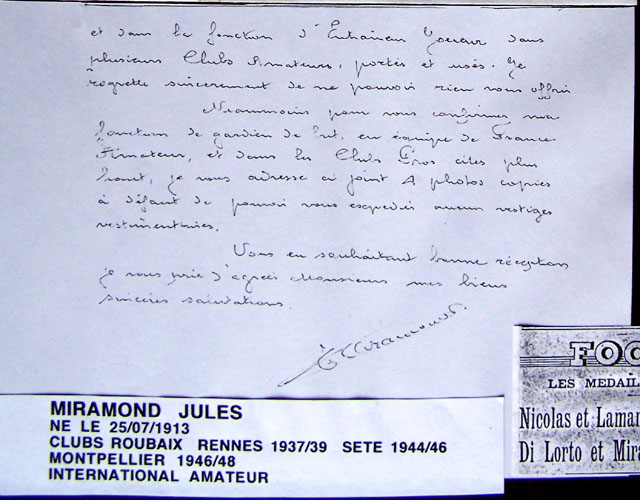 et dans la fonction d'Entraîneur Joueur dans
plusieurs Clubs Amateurs, portés et usés. Je
regrette sincèrement de ne pouvoir rien vous offrir
Néanmoins pour vous confirmer ma
fonction de gardien de but, en équipe de France
Amateur, et dans les Clubs Pros cités plus
haut, je vous adresse ci joint 4 photos copies
à défaut de pouvoir vous expédier aucun vestiges
vestimentaires.
Vous en souhaitant bonne réception
je vous prie d'agréer Monsieur mes biens
sincères salutations.
Miramond
MIRAMOND JULES
NE LE 25/07/1913
CLUBS ROUBAIX RENNES 1937/39 SETE 1944/46
MONTPELLIER 1946/48
INTERNATIONAL AMATEUR
FOO
LES MEDAIL
Nicolas et Lamar
Di Lorto et Mira